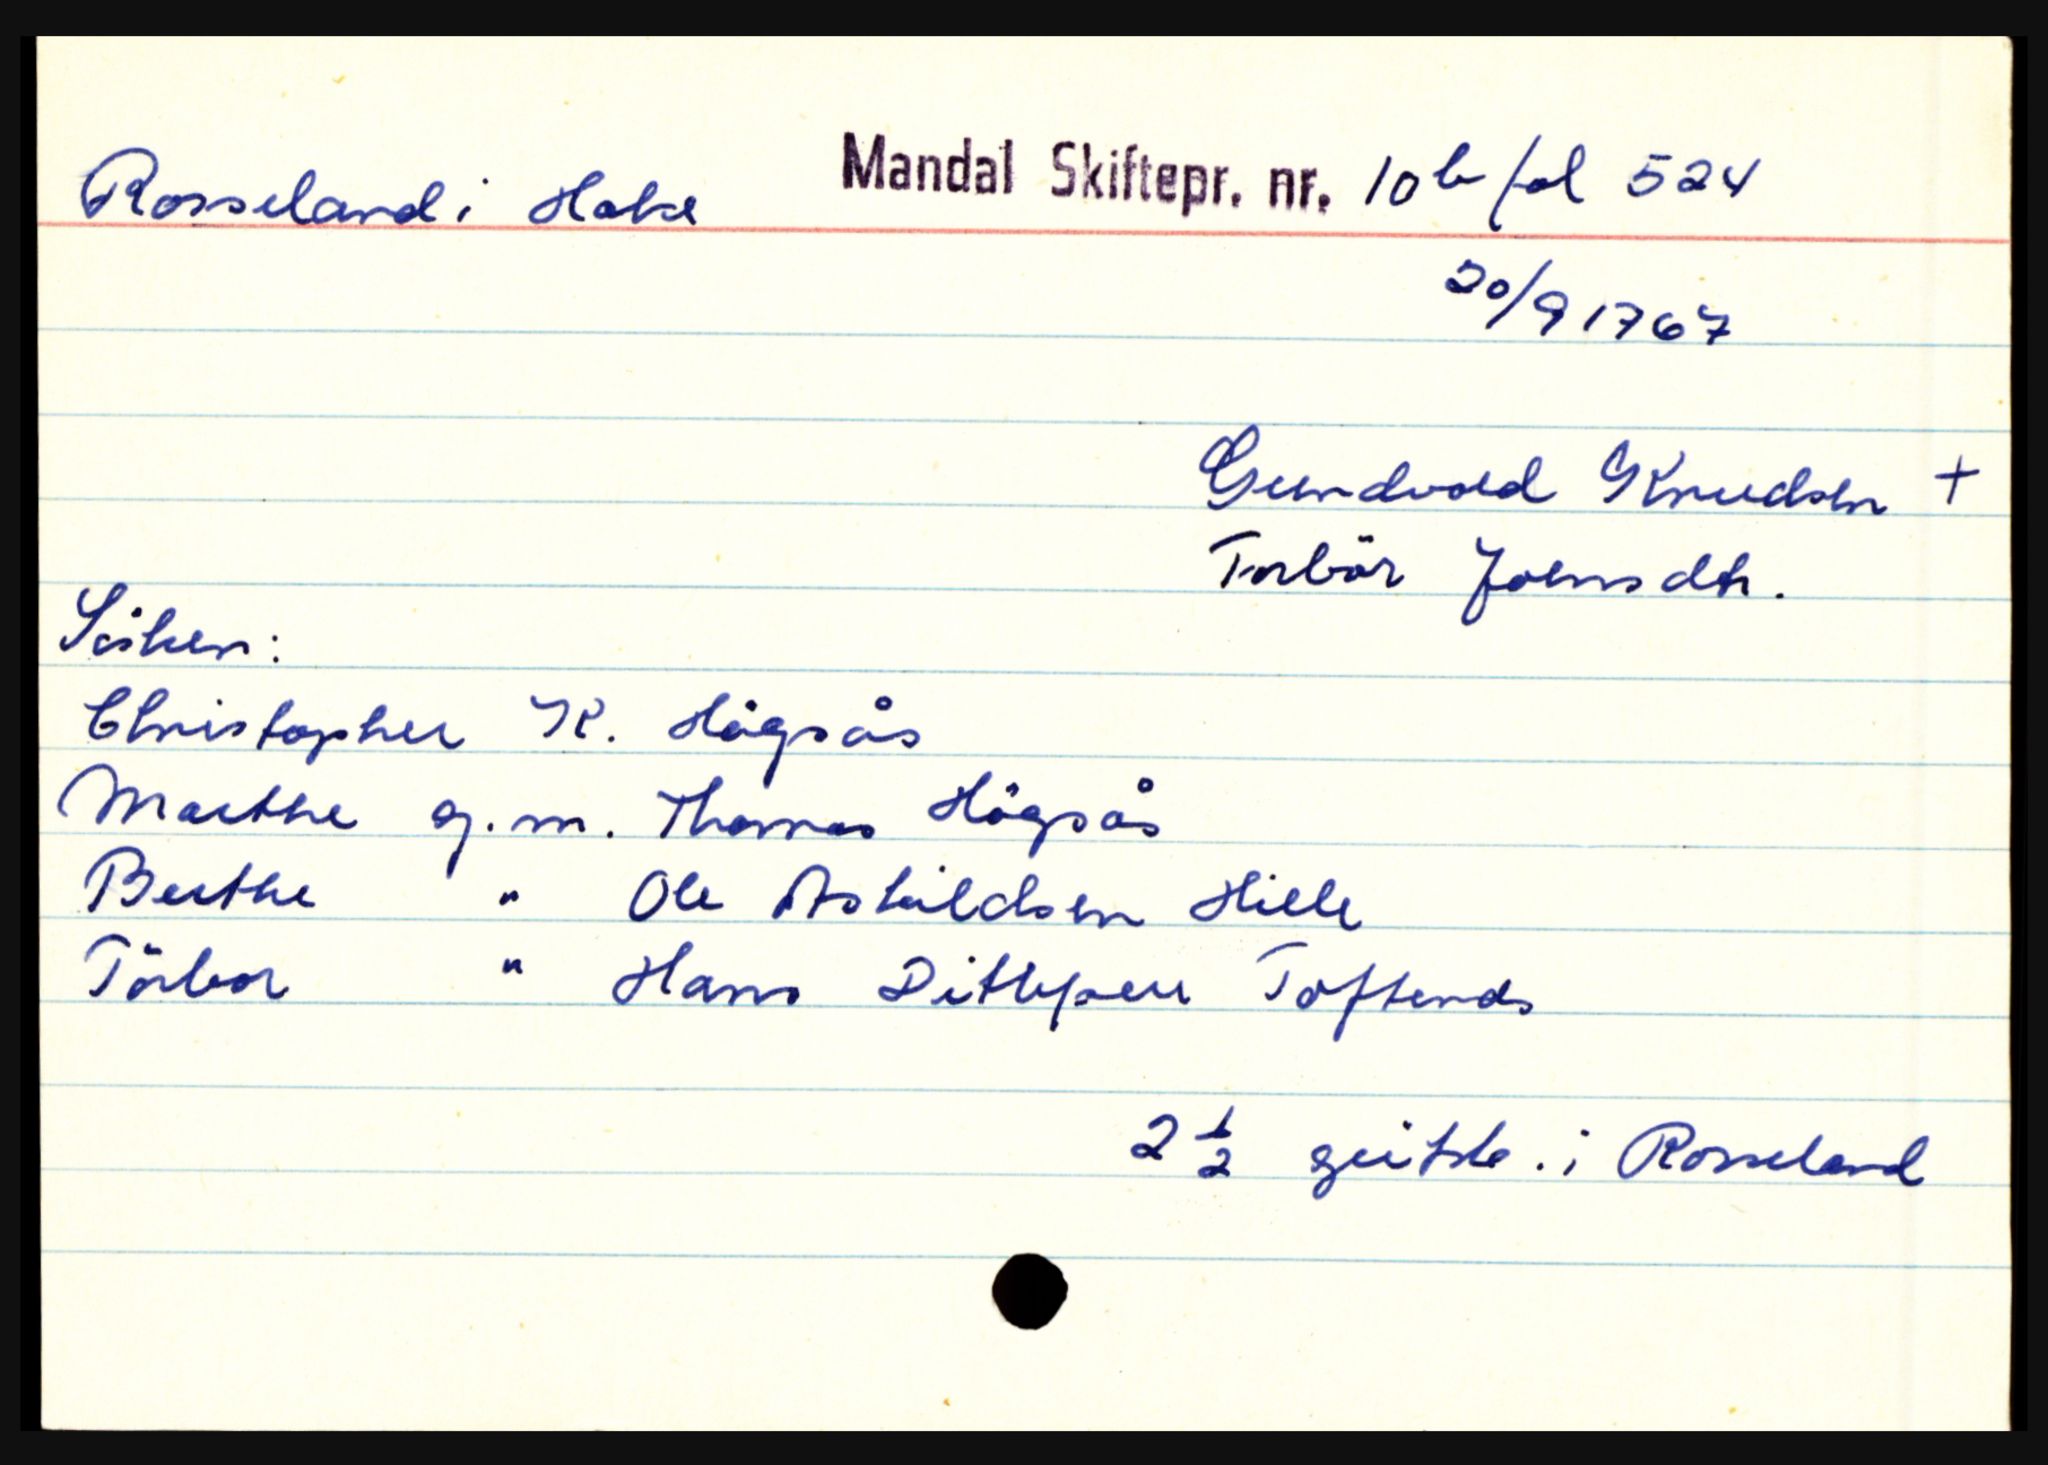 Rosseland i Halse Mandal Skiftepr. nr. 10 b fol 524
20/9 1767
Gundvald Knudsen +
Torbör Joensdtr.
Sösken:
Christopher K. Högsås
Marthe g.m. Thomas Högsås
Berthe " Ole Askildsen Hille
Törbor " Hans Ditlefsen Toftenes
2 1/2 geitsk. i Rosseland